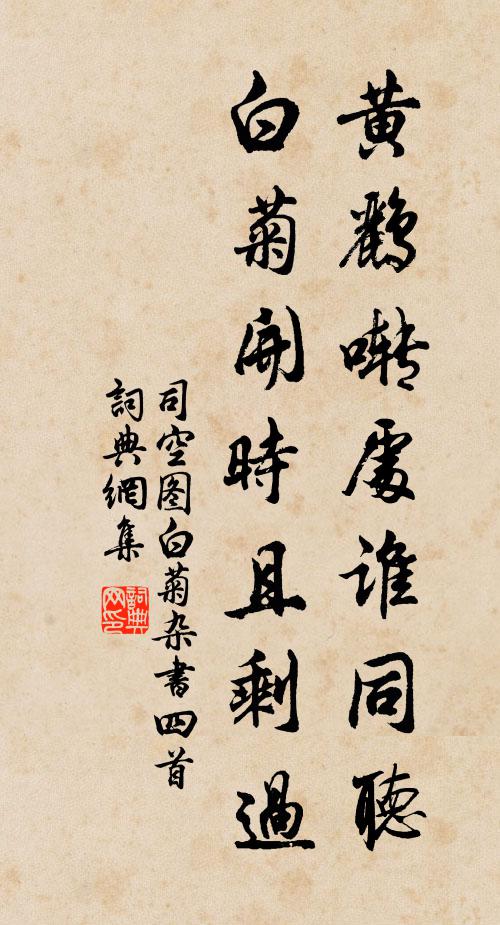 黄鸝囀處誰同聽
白菊開時且剩過
司空图白菊杂書四首
詞典網集
詞典
网印